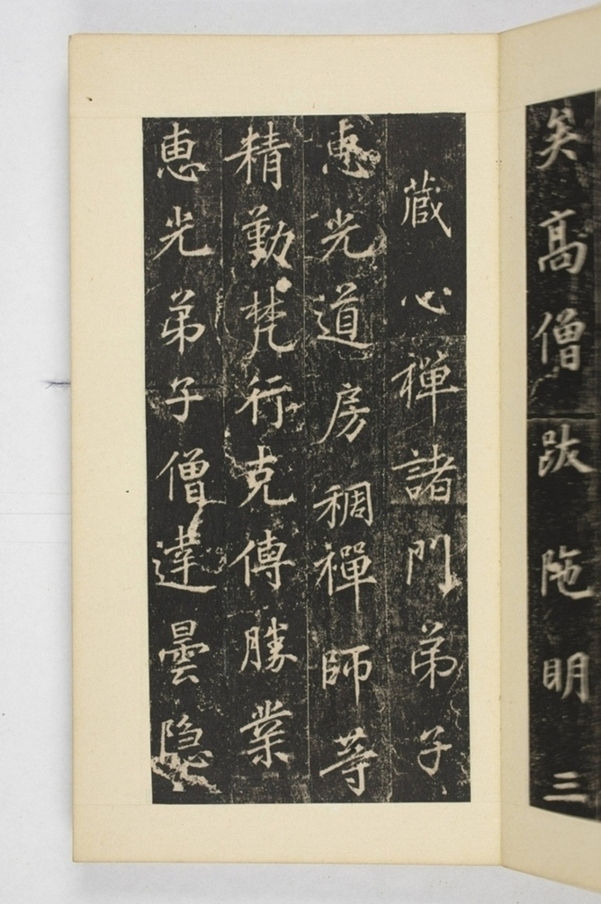 矣高僧跋陁明三
蔵心禅諸門弟子
恵光道房稠禅師等
精勤梵行克傳勝業
恵光弟子僧達曇隐